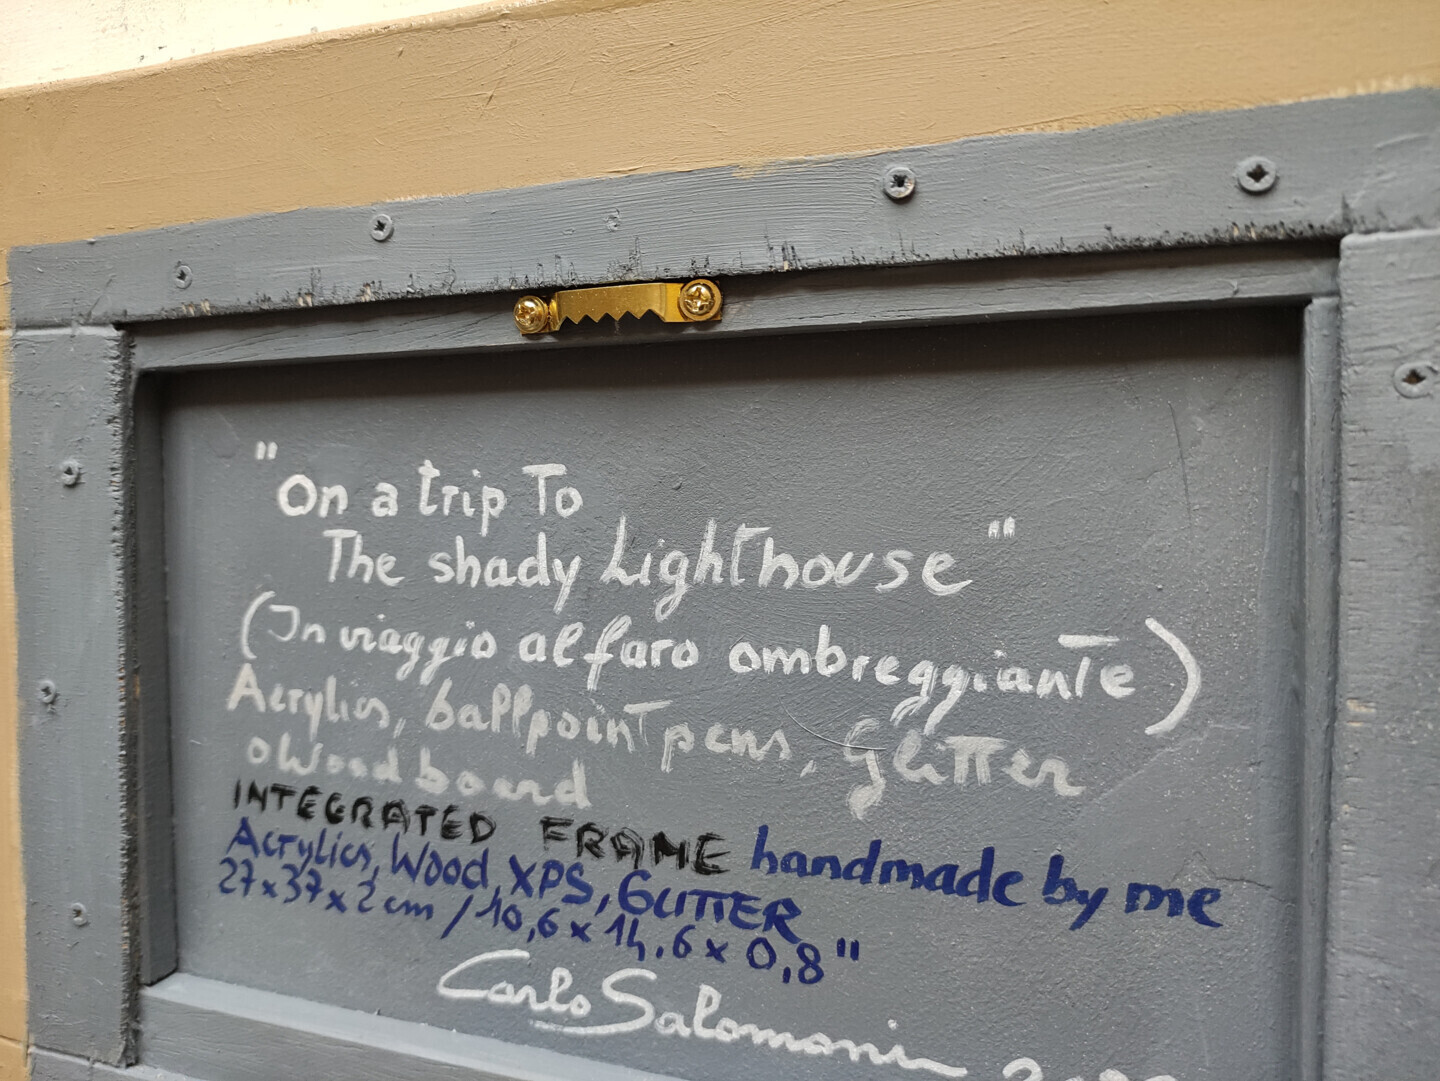 "On a trip To
The shady Lighthouse"
(In viaggio al faro ombreggiante)
Acrylics, ballpoint pens, Glitter
o Wood board
INTEGRATED FRAME handmade by me
Acrylics, Wood, XPS, GLITTER
27x37x2cm / 10,6 x 14,6 x 0,8"
Carlo Salomoni